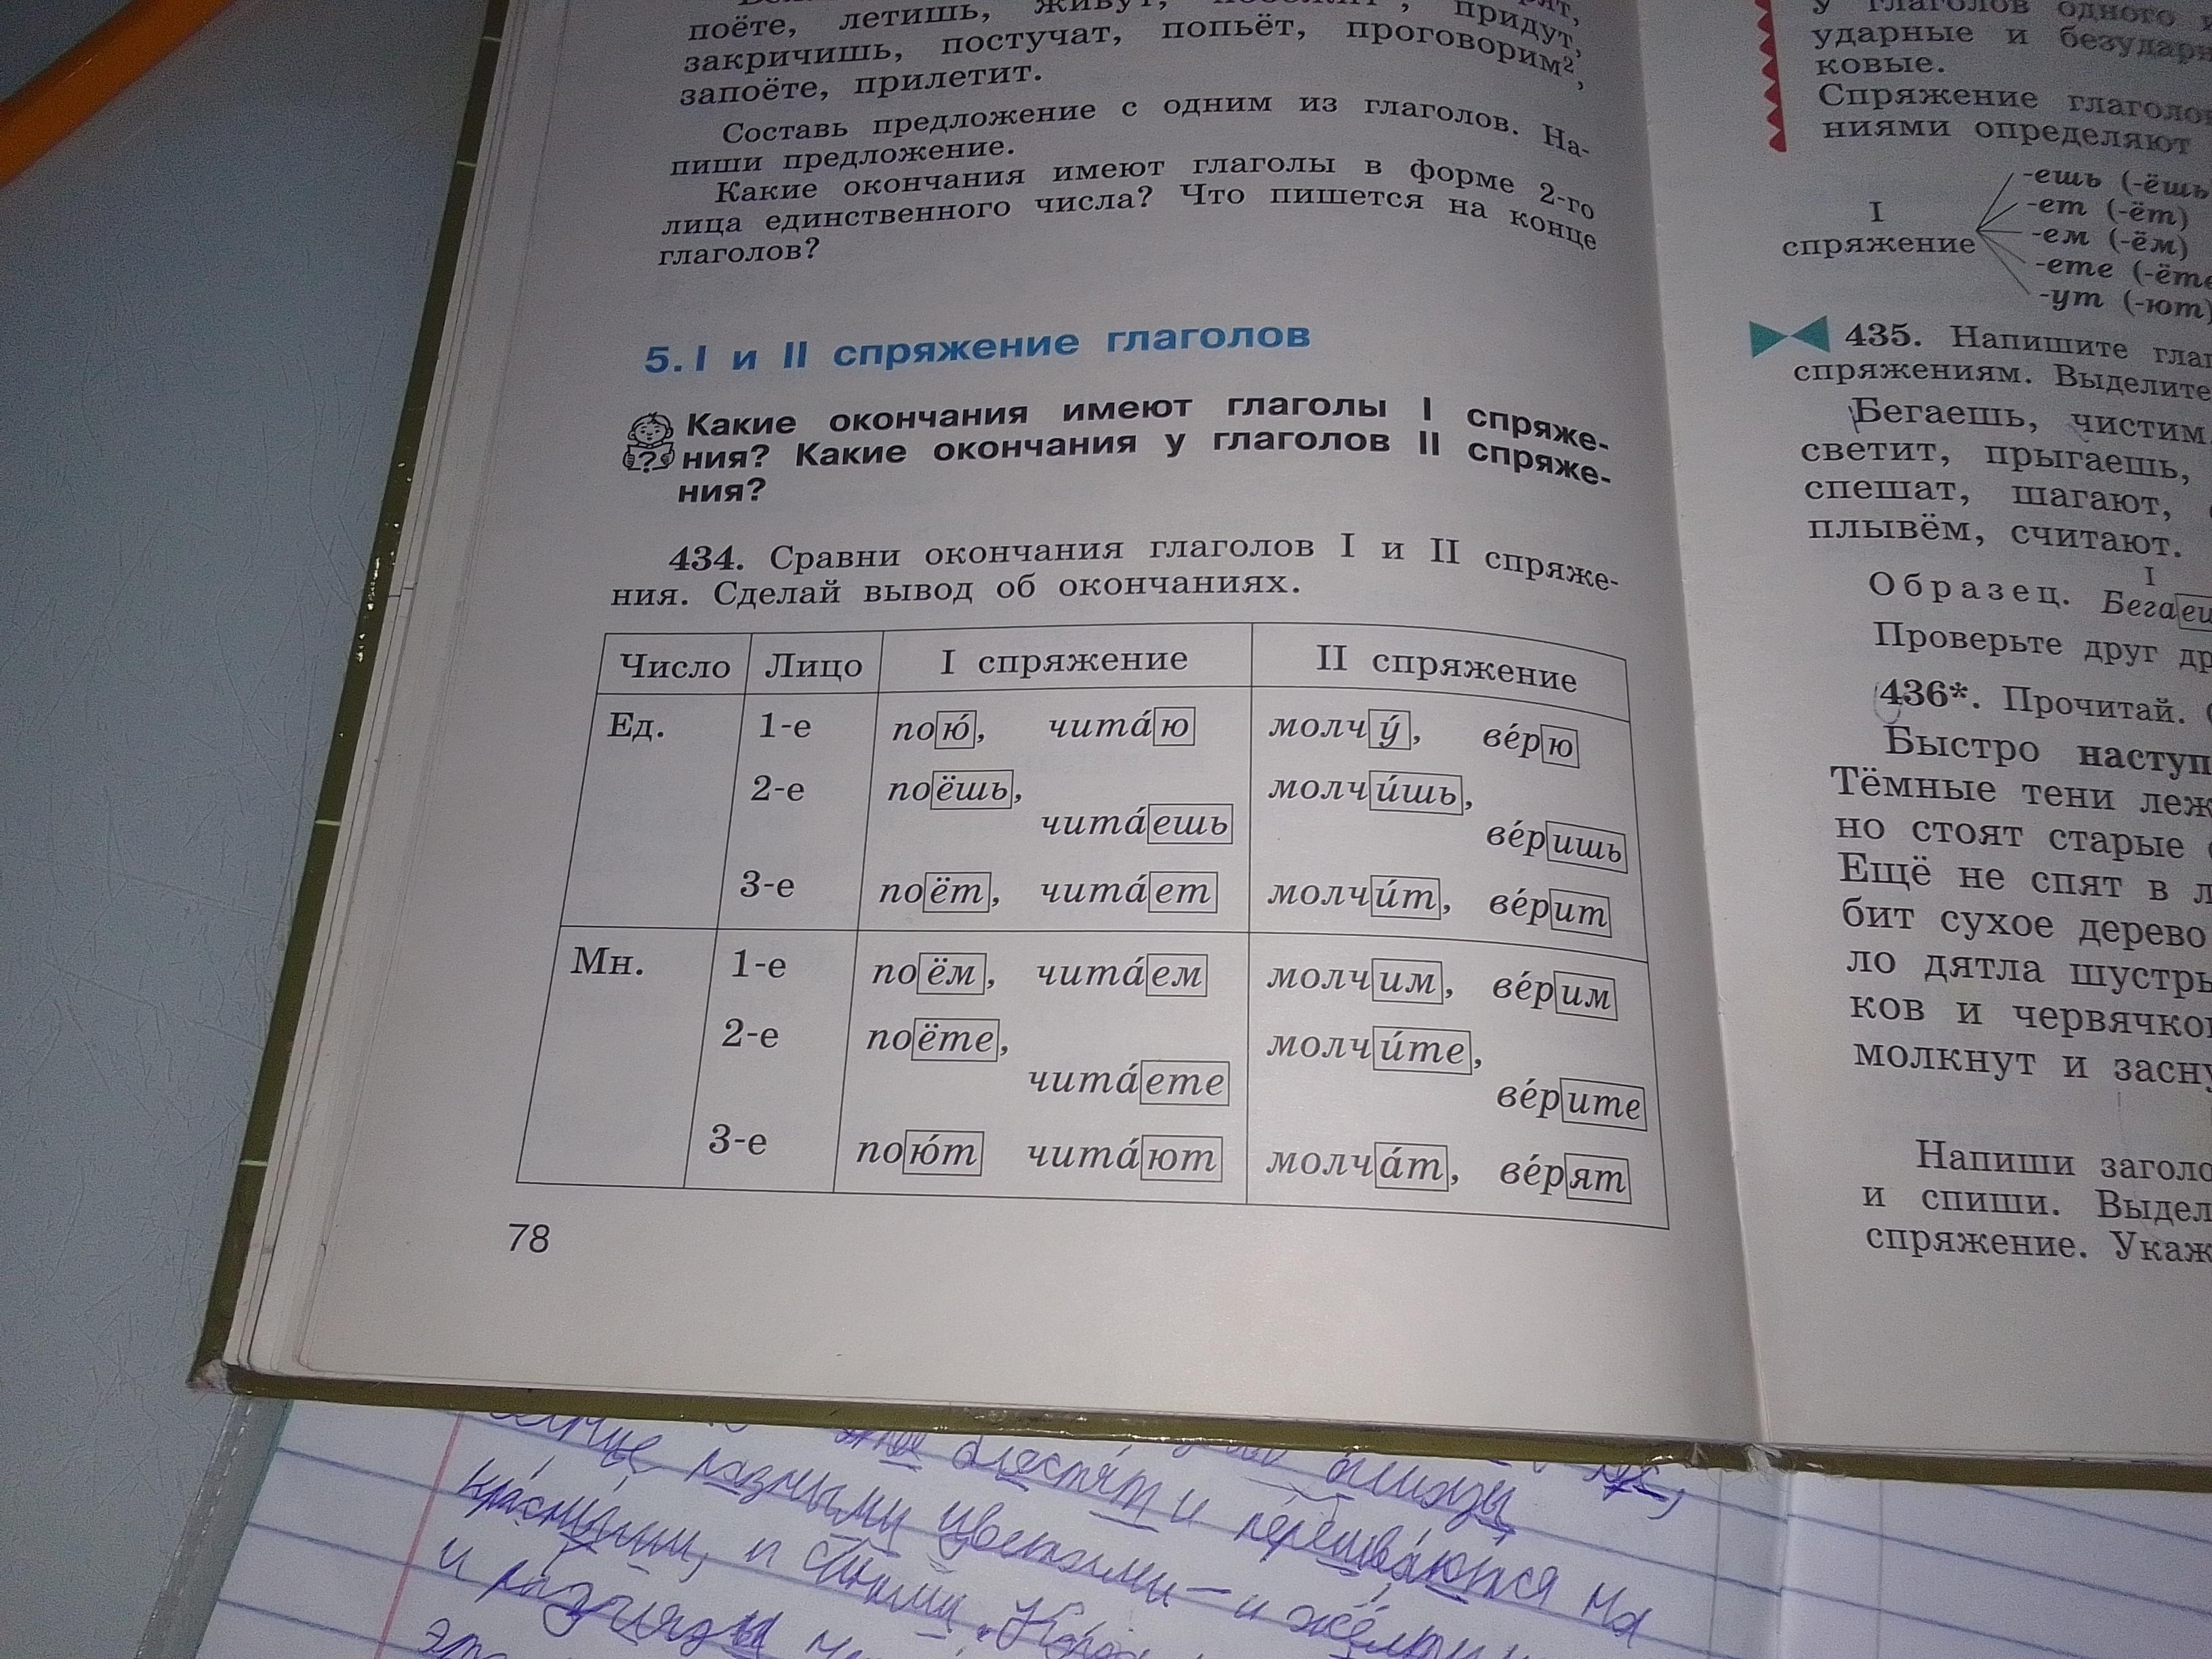 поёте, летишь, живут, придут,
закричишь, постучат, попьёт, проговорим²,
запоёте, прилетит.
Составь предложение с одним из глаголов. На-
пиши предложение.
Какие окончания имеют глаголы в форме 2-го
лица единственного числа? Что пишется на конце
глаголов?
5. I и II спряжение глаголов
Какие окончания имеют глаголы I спряже-
ния? Какие окончания у глаголов II спряже-
ния?
434. Сравни окончания глаголов I и II спряже-
ния. Сделай вывод об окончаниях.
Число Лицо I спряжение II спряжение
Ед. 1-е пою́, чита́ю молчу́, ве́рю
2-е поёшь, чита́ешь молчи́шь, ве́ришь
3-е поёт, чита́ет молчи́т, ве́рит
Мн. 1-е поём, чита́ем молчим, ве́рим
2-е поёте, чита́ете молчи́те, ве́рите
3-е пою́т чита́ют молча́т, ве́рят
78
у глаголов одного
ударные и безудар
ковые.
Спряжение глаголо
ниями определяют
I
спряжение
-ешь (-ёшь
-ет (-ёт)
-ем (-ём)
-ете (-ёте
-ут (-ют)
435. Напишите гла
спряжениям. Выделите
Бегаешь, чистим,
светит, прыгаешь,
спешат, шагают,
плывём, считают.
I
Образец. Бегаеш
Проверьте друг др
436*. Прочитай.
Быстро наступ
Тёмные тени леж
но стоят старые
Ещё не спят в л
бит сухое дерево
ло дятла шустры
ков и червячков
молкнут и засну
Напиши заголо
и спиши. Выдел
спряжение. Укаж
блестят и
разными цветами — и
и